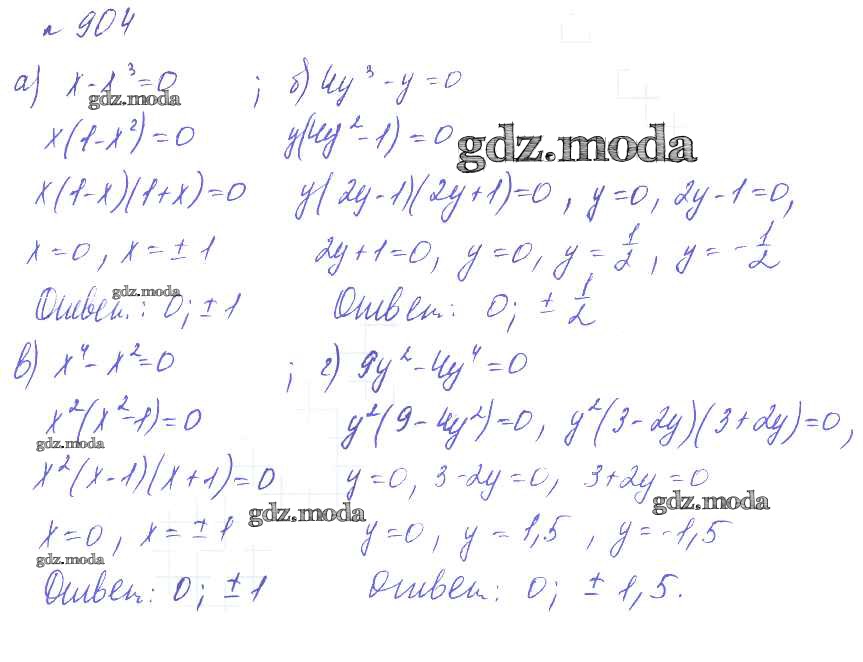 № 904
а) x - x³ = 0 ; б) 4y³ - y = 0
gdz.moda
x(1-x²) = 0 y(4y² - 1) = 0
gdz.moda
x(1-x)(1+x) = 0 y(2y-1)(2y+1) = 0, y = 0, 2y - 1 = 0,
x = 0, x = ± 1 2y + 1 = 0, y = 0, y = 1/2, y = - 1/2
gdz.moda
Ответ: 0; ± 1 Ответ: 0; ± 1/2
в) x⁴ - x² = 0 ; г) 9y² - 4y⁴ = 0
x²(x²-1) = 0 y²(9 - 4y²) = 0, y²(3-2y)(3+2y) = 0,
gdz.moda
x²(x-1)(x+1) = 0 y = 0, 3-2y = 0, 3+2y = 0
gdz.moda gdz.moda
x = 0, x = ± 1 y = 0, y = 1,5, y = -1,5
gdz.moda
Ответ: 0; ± 1 Ответ: 0; ± 1,5.